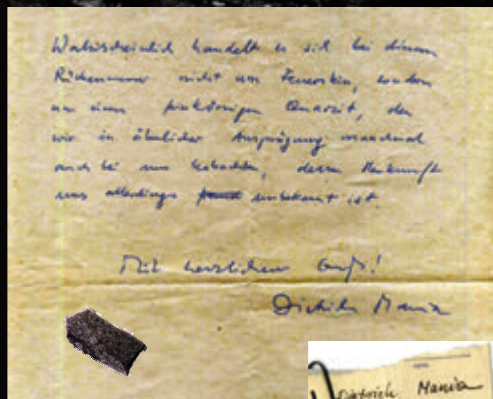 Wahrscheinlich handelt es sich bei diesem
Rückenmesser nicht um Feuerstein, sondern
um einen feinkörnigen Quarzit, den
wir in ähnlicher Ausprägung manchmal
auch bei uns beobachten, dessen Herkunft
uns allerdings unbekannt ist.
Mit herzlichem Gruß!
Dietrich Mania
Dietrich Mania